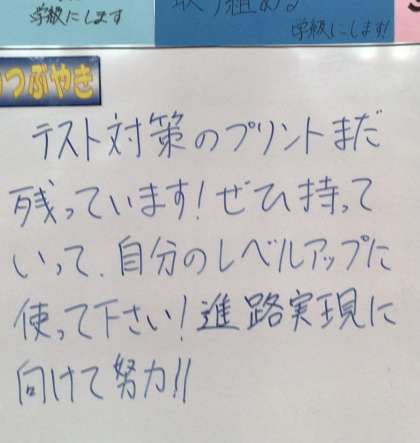 学級にします
取り組める
学級にします!
つぶやき
テスト対策のプリントまだ
残っています!ぜひ持って
いって、自分のレベルアップに
使って下さい!進路実現に
向けて努力!!